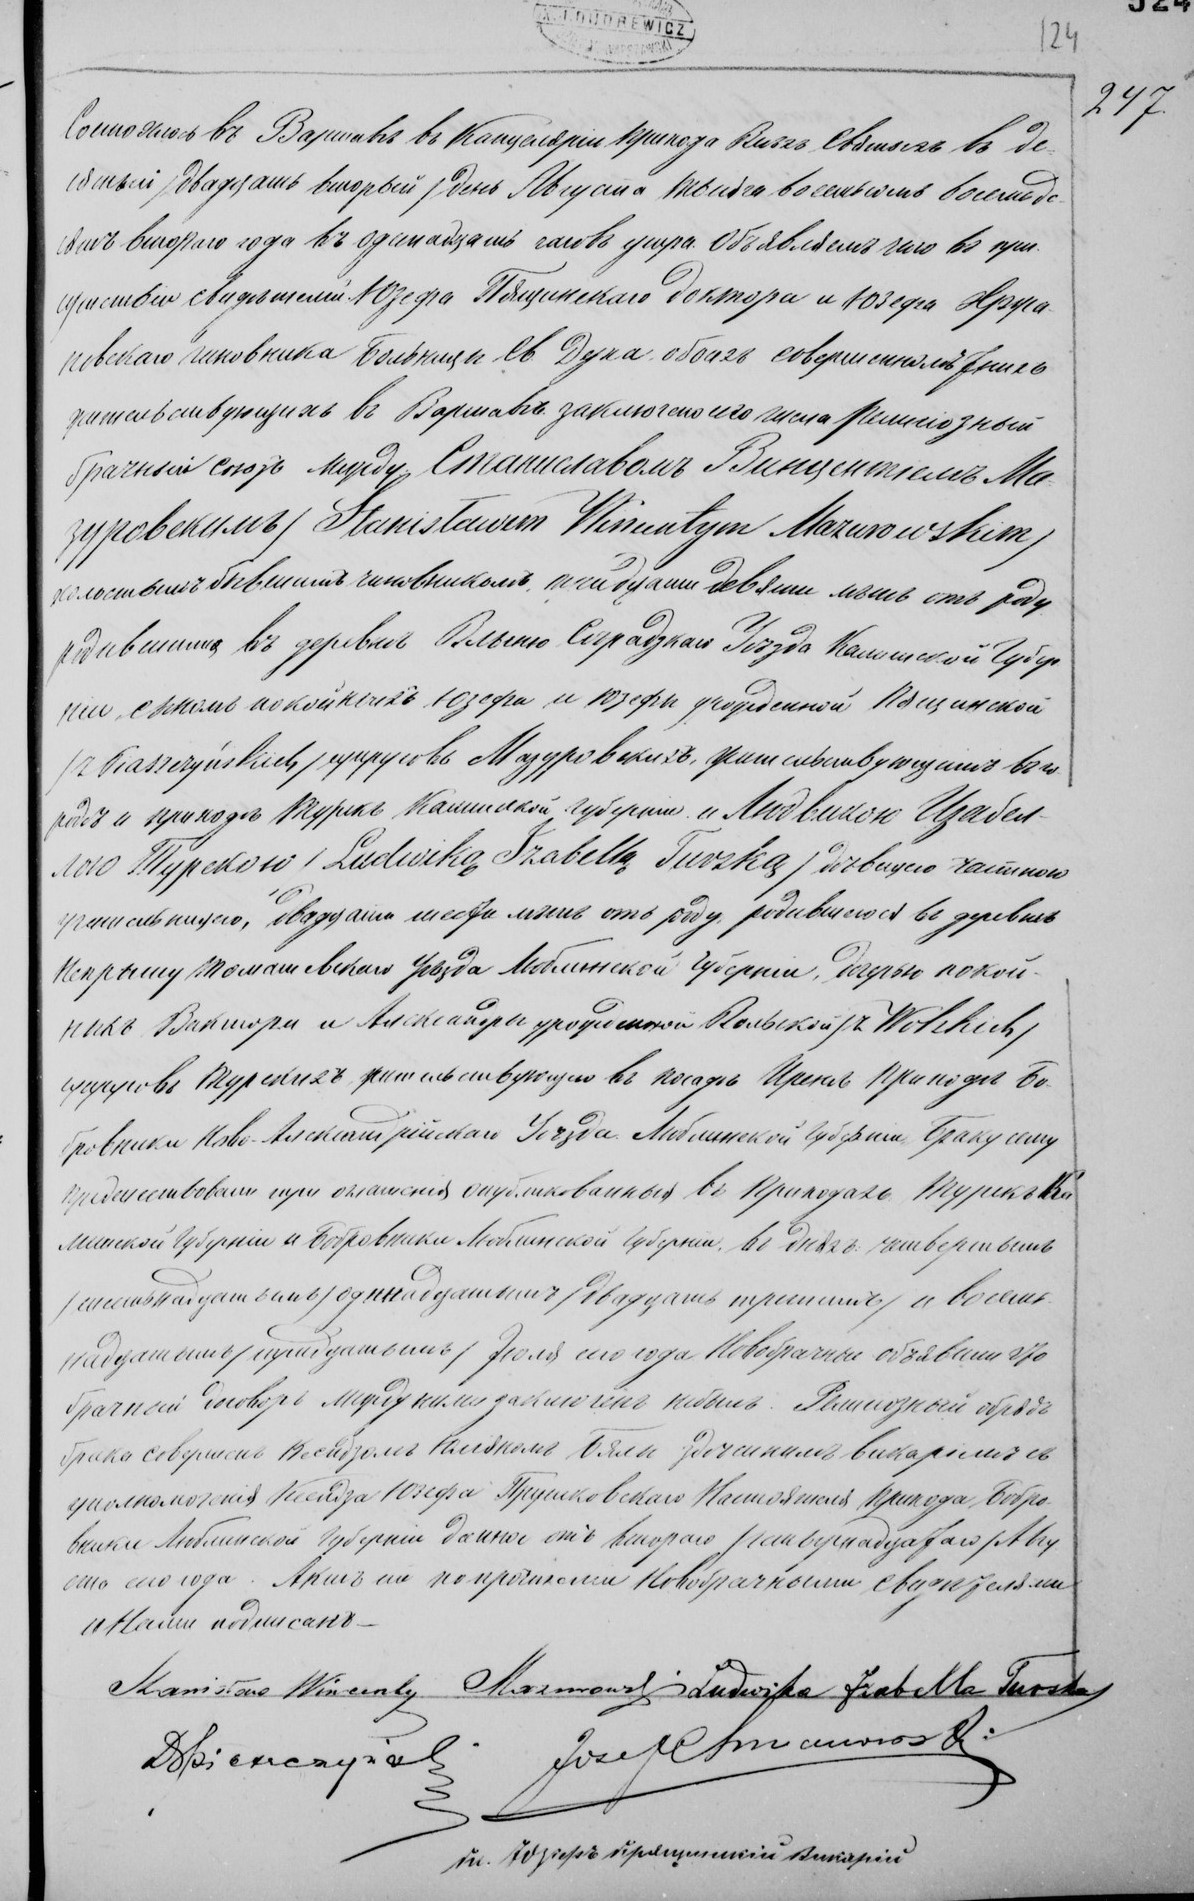 324
124
LOUDREWICZ
247.
Состоялось въ Варшавѣ въ Канцеляріи прихода Всѣхъ Святыхъ въ де-
сятый /двадцать вторый/ день Августа тысяча восемьсотъ восемьде-
сятъ втораго года въ одинадцать часовъ утра. Объявляемъ что въ при-
сутствіи свидѣтелей Юзефа доктора и Юзефа
чиновника Больницы Св. Духа обоихъ совершеннолѣтнихъ
жительствующихъ въ Варшавѣ заключено сего числа религіозный
брачный союзъ между Станиславомъ Винцентіемъ Ма-
зуровскимъ /Stanisławem Wincentym Mazurowskim/
холостымъ бывшимъ чиновникомъ, тридцати девяти лѣтъ отъ роду
родившимся въ деревнѣ Сѣрадзкаго Уѣзда Калишской Губер-
ніи, сыномъ покойныхъ Юзефа и Юзефы урожденной
/z Piaszczyńskich/ супруговъ Мазуровскихъ, жительствующимъ въ го-
родѣ и приходѣ Турекъ Калишской губерніи и Людвикою Изабел-
лою Турскою /Ludwiką Izabellą Turską/ дѣвицею частною
учительницею, двадцати шести лѣтъ отъ роду, родившеюся въ деревнѣ
Томашевскаго Уѣзда Люблинской Губерніи, дочерью покой-
ныхъ Виктора и Александры урожденной Вольской /z Wolskich/
супруговъ Турскихъ жительствующею въ посадѣ Ирена приходѣ Бо-
бровники Ново-Александрійскаго Уѣзда Люблинской Губерніи. Браку сему
предшествовали три оглашенія опубликованныя въ приходахъ Турекъ Ка-
лишской Губерніи и Бобровники Люблинской Губерніи, въ дняхъ: четвертымъ
/шестьнадцатымъ/ одинадцатымъ /двадцать третимъ/ и восемь-
надцатымъ /тридцатымъ/ Іюля сего года. Новобрачные объявили что
брачный договоръ между ними заключенъ небылъ. Религіозный обрядъ
брака совершенъ Ксендзомъ викаріемъ съ
уполномоченія Ксендза Юзефа Прушковскаго Настоятеля прихода Бобро-
вники Люблинской Губерніи даннаго отъ втораго /четырнадцатаго/ Авгу-
ста сего года. Актъ сей по прочтеніи Новобрачными свидѣтелями
и Нами подписанъ.—
Stanisław Wincenty Mazurowski Ludwika Izabella Turska
Józef
Кс. Юзефъ Викарій